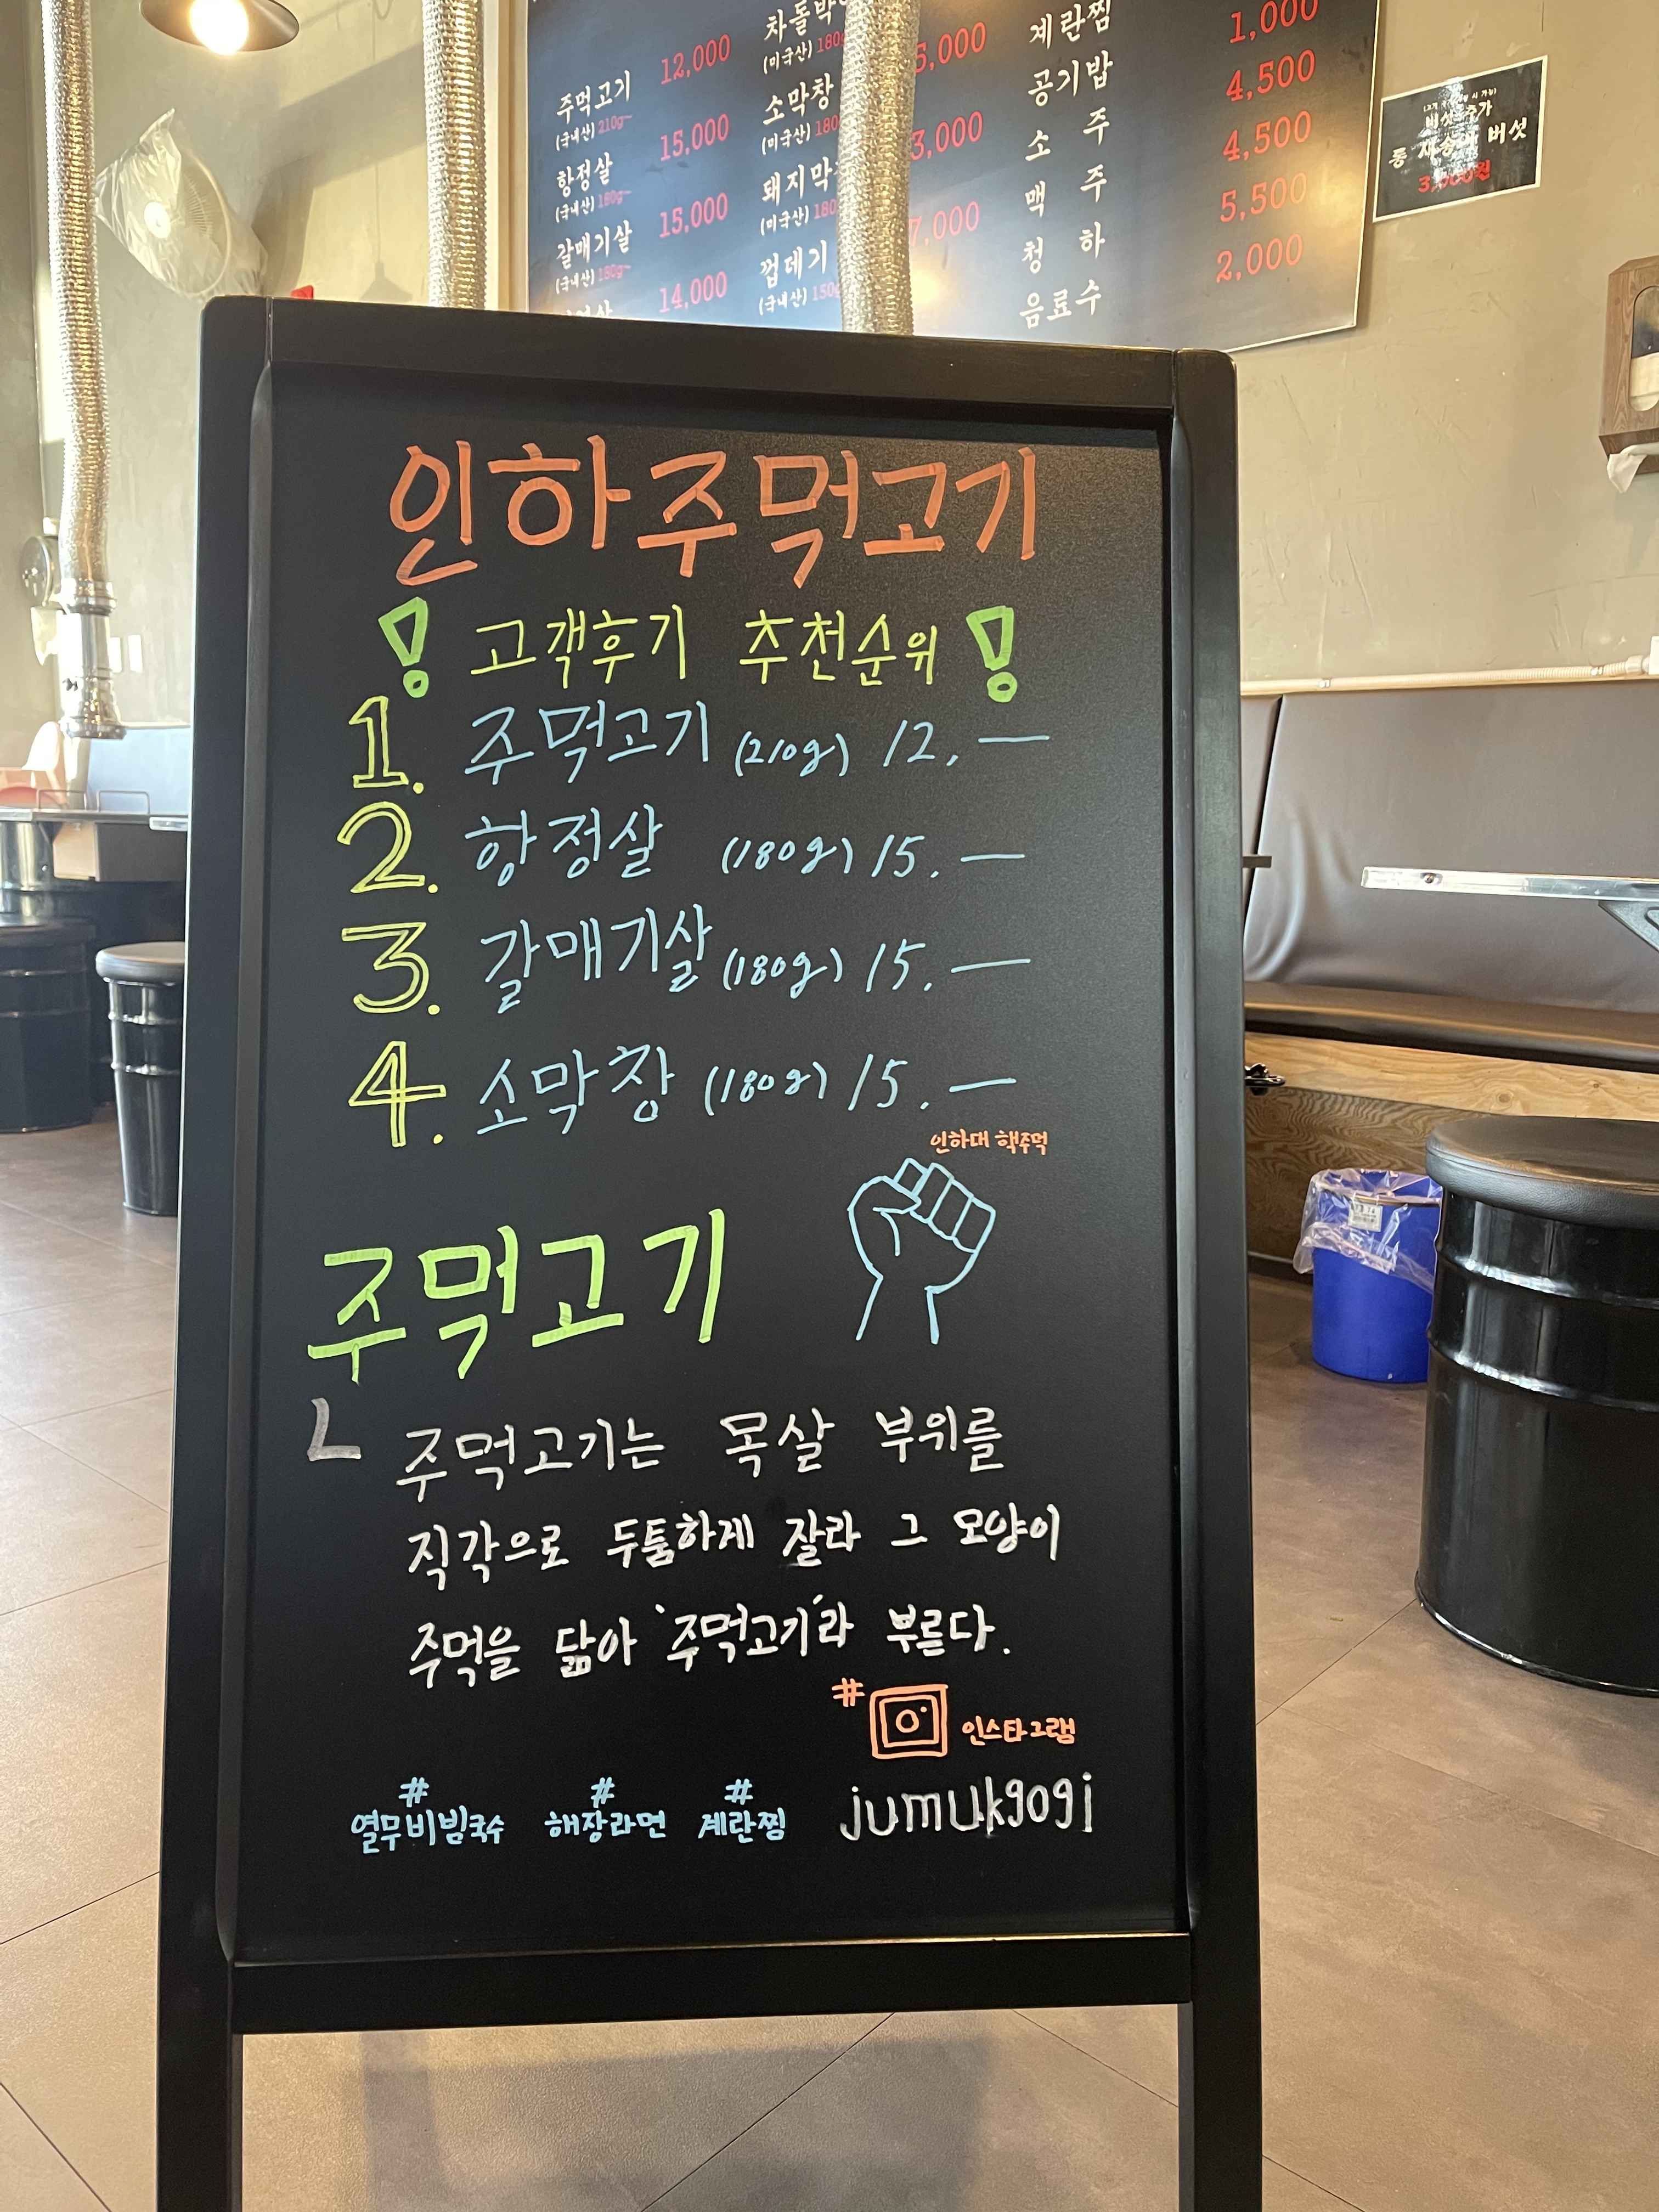 주먹고기 12,000
(국내산) 210g~
항정살 15,000
(국내산) 180g~
갈매기살 15,000
(국내산) 180g~
14,000
(미국산) 180g
소막창
(미국산) 180
돼지막
(미국산) 180
껍데기
(국내산) 150g
,000
,000
,000
계란찜
공기밥 1,000
소 주 4,500
맥 주 4,500
청 하 5,500
음료수 2,000
버섯 추가
버섯
인하주먹고기
! 고객후기 추천순위 !
1. 주먹고기 (210g) 12.—
2. 항정살 (180g) 15.—
3. 갈매기살 (180g) 15.—
4. 소막창 (180g) 15.—
인하대 핵주먹
주먹고기
ㄴ 주먹고기는 목살 부위를
직각으로 두툼하게 잘라 그 모양이
주먹을 닮아 '주먹고기'라 부른다.
# 인스타그램
# # #
열무비빔국수 해장라면 계란찜 jumukgogi